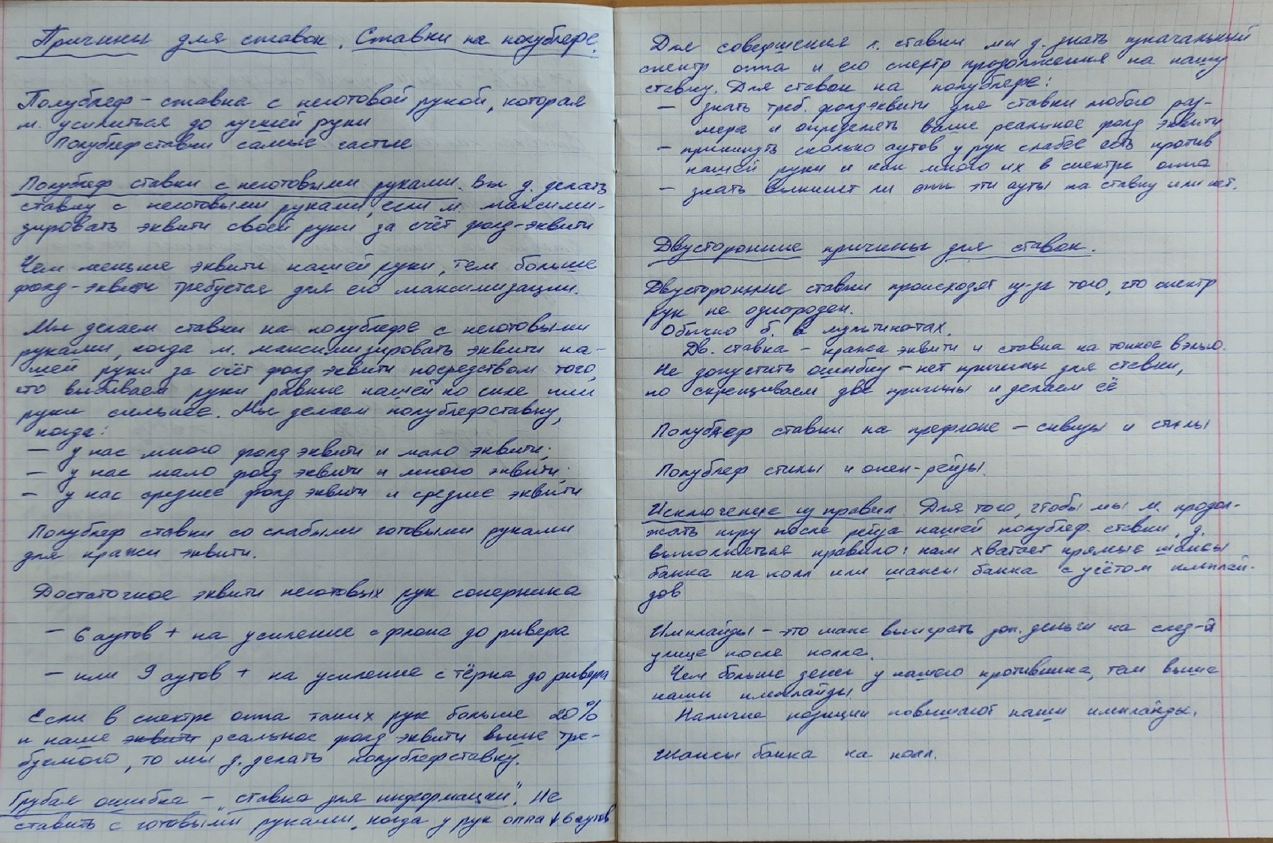 Причины для ставок. Ставки на полублефе.
Полублеф – ставка с неготовой рукой, которая
м. усилиться до лучшей руки
Полублеф ставки самые частые
Полублеф ставки с неготовыми руками. Вы д. делать
ставку с неготовыми руками, если м. максими-
зировать эквити своей руки за счёт фолд-эквити
Чем меньше эквити нашей руки, тем больше
фолд-эквити требуется для его максимизации.
Мы делаем ставки на полублефе с неготовыми
руками, когда м. максимизировать эквити на-
шей руки за счёт фолд эквити посредством того,
что выбиваем руки равные нашей по силе или
руки сильнее. Мы делаем полублефставку,
когда:
– у нас много фолд эквити и мало эквити;
– у нас мало фолд эквити и много эквити;
– у нас среднее фолд эквити и среднее эквити
Полублеф ставки со слабыми готовыми руками
для кражи эквити.
Достаточное эквити неготовых рук соперника
– 6 аутов + на усиление с флопа до ривера
– или 9 аутов + на усиление с тёрна до ривера
Если в спектре оппа таких рук больше 20%
и наше реальное фолд эквити выше тре-
буемого, то мы д. делать полублефставку.
Грубая ошибка – "ставка для информации". Не
ставить с готовыми руками, когда у рук оппа 6 аутов
Для совершения л. ставки мы д. знать изначальный
спектр оппа и его спектр продолжения на нашу
ставку. Для ставок на полублефе:
– знать треб. фолдэквити для ставки любого раз-
мера и определять ваше реальное фолд эквити
– прикинуть сколько аутов у рук слабее есть против
нашей руки и как много их в спектре оппа
– знать выкинет ли эти ауты на ставку или нет.
Двусторонние причины для ставок.
Двусторонние ставки происходят из-за того, что спектр
рук не однороден.
Обычно б. в мультипотах.
Дв. ставка – кража эквити и ставка на тонкое вэлью.
Не допустить ошибку – нет причины для ставки,
но скрещиваем две причины и делаем её
Полублеф ставки на префлопе – сквизы и стилы
Полублеф стилы и опен-рейзы.
Исключение из правил Для того, чтобы мы м. продол-
жать игру после рейза нашей полублеф. ставки, д.
выполняться правило: нам хватает прямые шансы
банка на колл или шансы банка с учётом имплай-
дов
Имплайды – это шанс выиграть доп. деньги на след-й
улице после колла.
Чем больше денег у нашего противника, тем выше
наши имплайды
Наличие позиции повышают наши имплайды.
Шансы банка на колл.